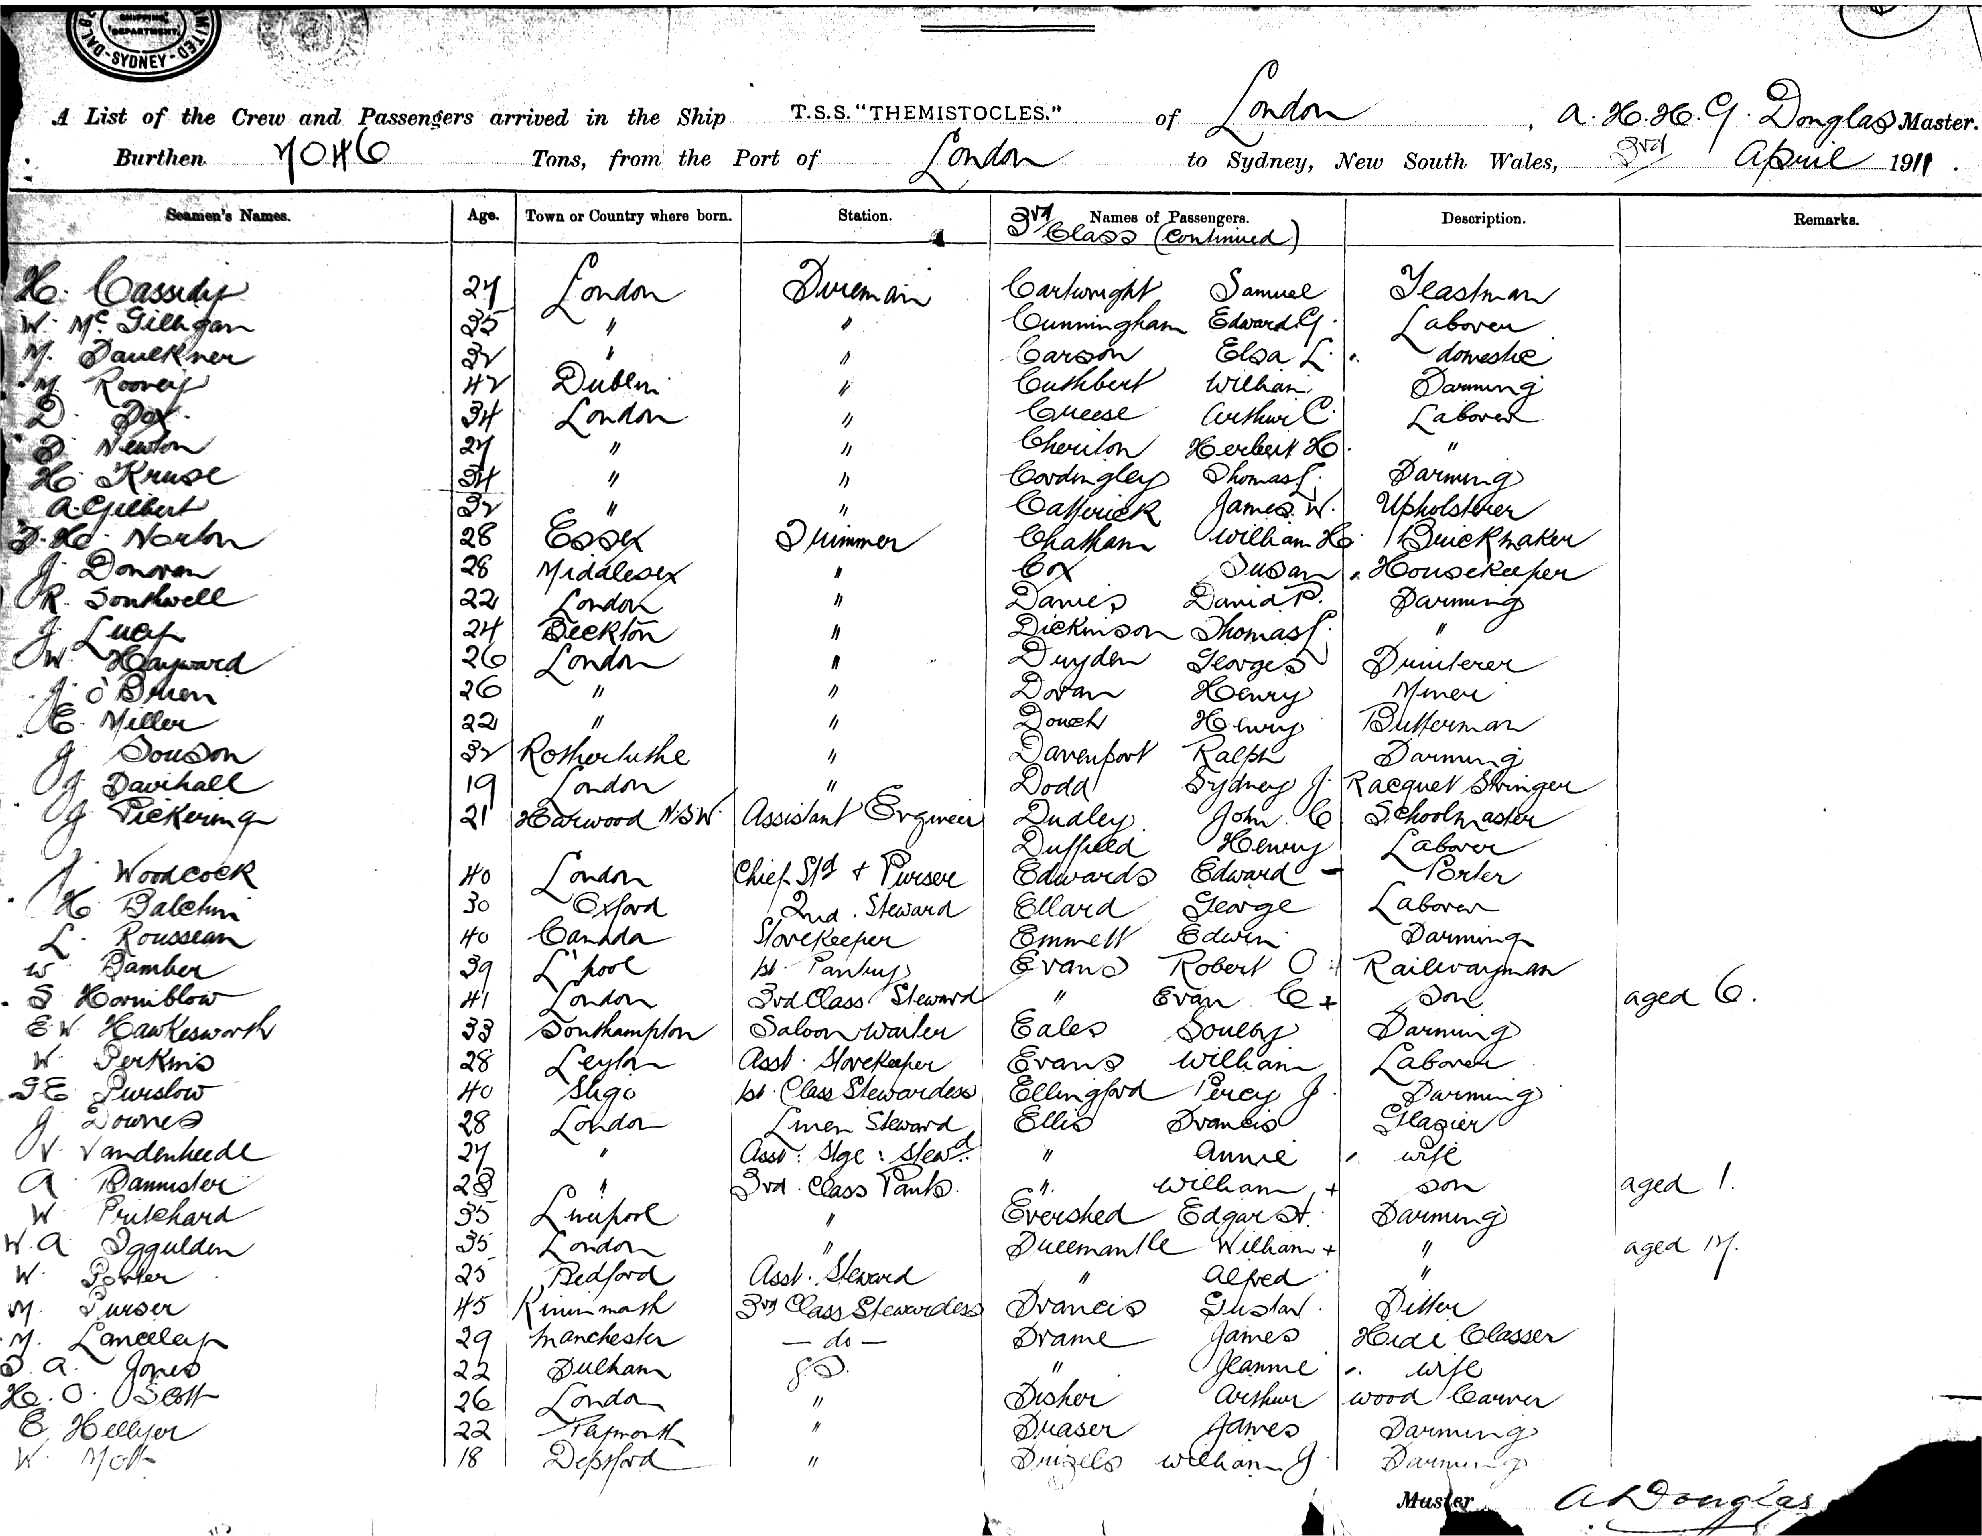 SHIPPING DEPARTMENT. SYDNEY
A List of the Crew and Passengers arrived in the Ship T.S.S. "THEMISTOCLES." of London, A. H. H. G. Douglas Master.
Burthen 7046 Tons, from the Port of London to Sydney, New South Wales, 3rd April 1911.
Seamen's Names. Age. Town or Country where born. Station. Names of Passengers. Description. Remarks.
3rd Class (continued)
H. Cassidy 27 London Fireman Cartwright Samuel Yeastman
W. McGilligan 25 " " Cunningham Edward G. Laborer
M. Faulkner 32 " " Carson Elsa L. domestic
M. Rooney 42 Dublin " Cuthbert William Farming
D. Fox 34 London " Creese Arthur C. Laborer
Newton 27 " " Cheriton Herbert H. "
H. Kruse 34 " " Cordingley Thomas L. Farming
A. Gilbert 32 " " Catterick James W. Upholsterer
F. H. Norton 28 Essex Trimmer Chatham William H. Brickmaker
J. Donovan 28 Middlesex " Cox Susan Housekeeper
R. Southwell 22 London " Davies David P. Farming
J. Lucy 24 Beckton " Dickinson Thomas L. "
W. Hayward 26 London " Dryden Georges Fruiterer
J. O'Brien 26 " " Doran Henry Miner
E. Miller 22 " " Douch Henry Butterman
J. Souson 32 Rotherhithe " Davenport Ralph Farming
J. Davihall 19 London " Dodd Sydney J. Racquet Stringer
J. Pickering 21 Harwood N.S.W. Assistant Engineer Dudley John C Schoolmaster
Duffield Henry Laborer
J. Woodcock 40 London Chief Std + Purser Edwards Edward - Porter
H. Balchin 30 Oxford 2nd. Steward Ellard George Laborer
L. Rousseau 40 Canada Storekeeper Emmett Edwin Farming
W. Bamber 39 L'pool 1st. Pantry Evans Robert O Railwayman
S Horniblow 41 London 3rd Class Steward " Evan C + son aged 6.
E W Hawkesworth 33 Southampton Saloon Waiter Eales Soulby Farming
W. Perkins 28 Leyton Asst. Storekeeper Evans William Laborer
Purslow 40 Sligo 1st. Class Stewardess Ellingford Percy J. Farming
J Downes 28 London Linen Steward Ellis Francis Glazier
V. Vandenheede 27 " Asst: Stge: Stewd. " Annie wife
A Bannister 28 " 3rd. Class Pants. " William + son aged 1.
W Pritchard 35 Liverpool " Evershed Edgar St. Farming
W. A Iggulden 35 London " Freemantle William + " aged 17.
W. Porter 25 Bedford Asst. Steward " Alfred "
M. Purser 45 3rd Class Stewardess Francis Gustav. Fitter
M. Lanceley 29 Manchester - do - Frame James Hide Classer
A. Jones 22 Fulham " Jeannie wife
H. O. Scott 26 London " Fisher Arthur Wood Carver
E. Hellyer 22 " Fraser James Farming
W. Mott 18 Deptford " William J Farming
Master A Douglas